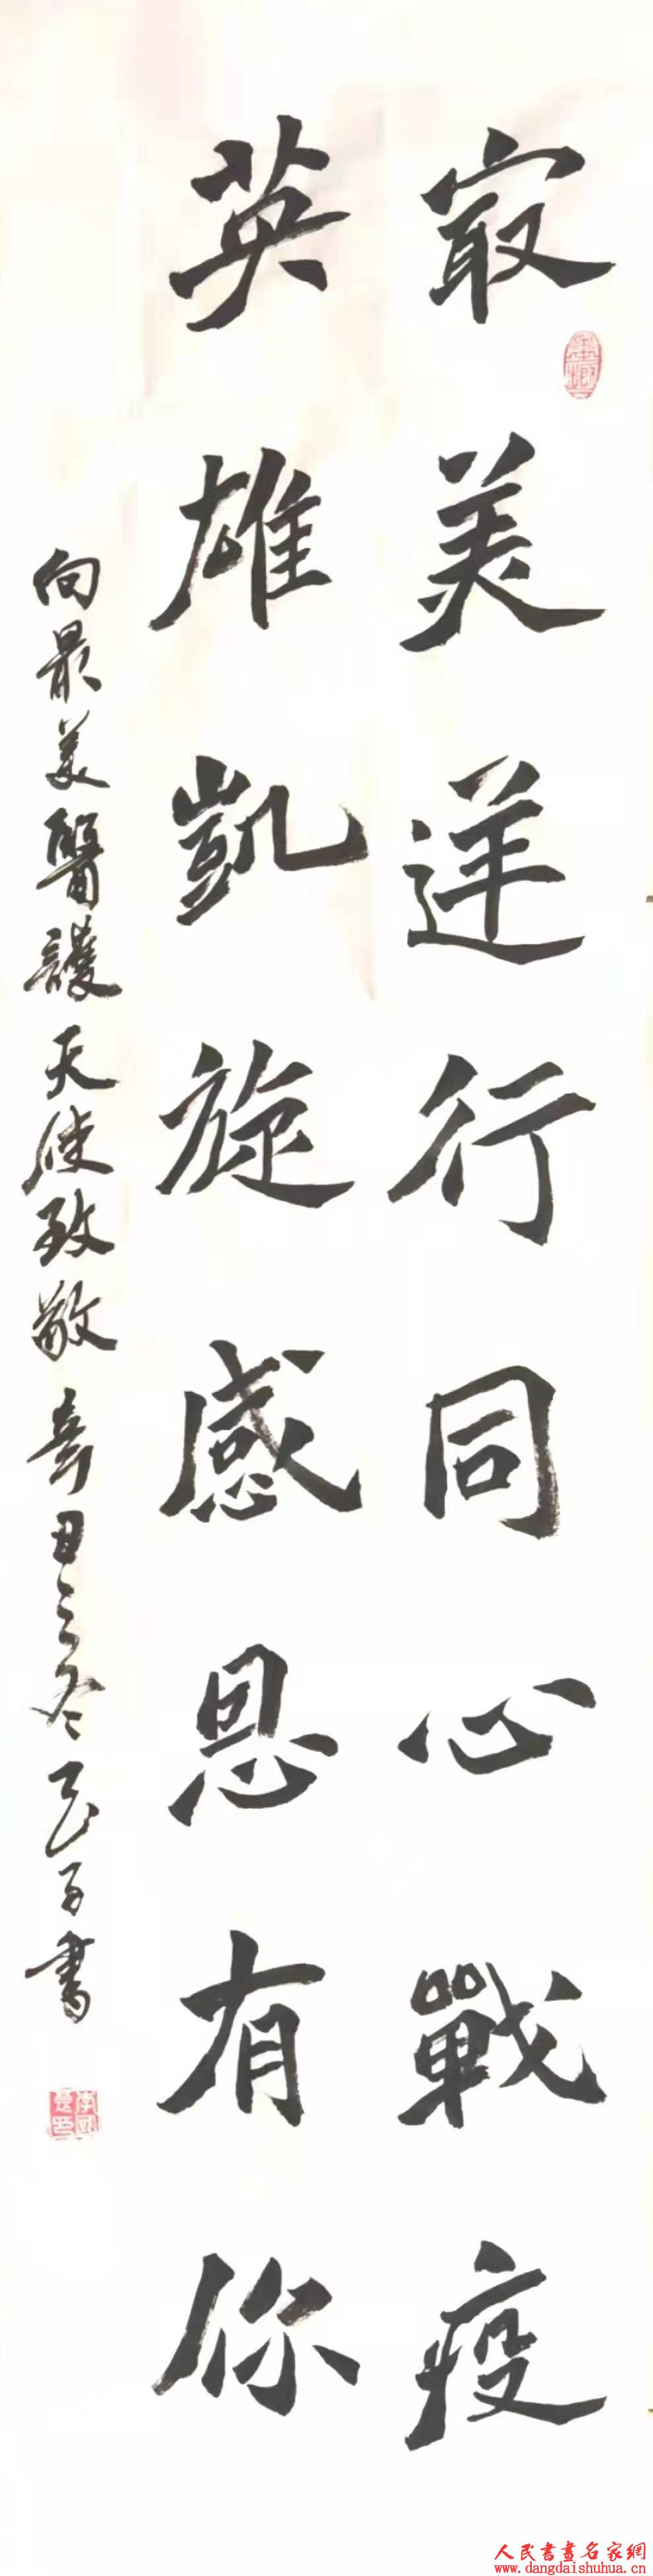 㝡美逆行同心戰疫
英雄凱旋感恩有你
向最美醫護天使致敬 辛丑之冬 书
人民書畫名家網
www.dangdaishuhua.cn